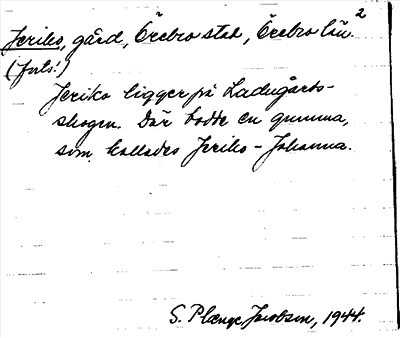 Jeriko, gård, Örebro stad, Örebro län. 2
(forts.)
Jeriko ligger på Ladugårds-
skogen. Där bodde en gumma,
som kallades Jeriko-Johanna.
S. Plænge Jacobson, 1944.